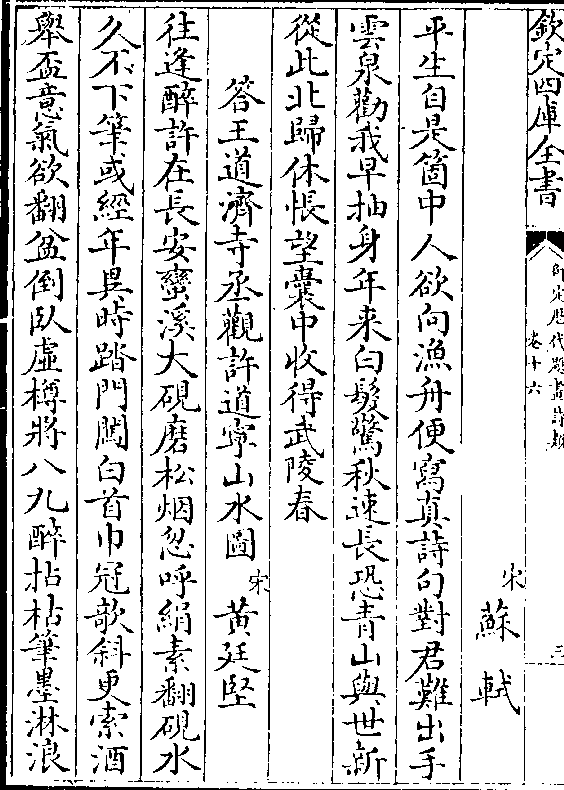 欽定四庫全書
御定歴代題畫詩類
卷十六
三
宋
蘇軾
平生自是箇中人欲向漁舟便寫真詩句對君難出手
雲泉勸我早抽身年来白髮驚秋速長恐青山與世新
從此北歸休悵望囊中收得武陵春
答王道濟寺丞觀許道寧山水圖
宋
黄廷堅
往逢醉許在長安蠻溪大硯磨松烟忽呼絹素翻硯水
久不下筆或經年異時踏門闖白首巾冠欹斜更索酒
舉盃意氣欲翻盆倒臥虛樽將八九醉拈枯筆墨淋浪